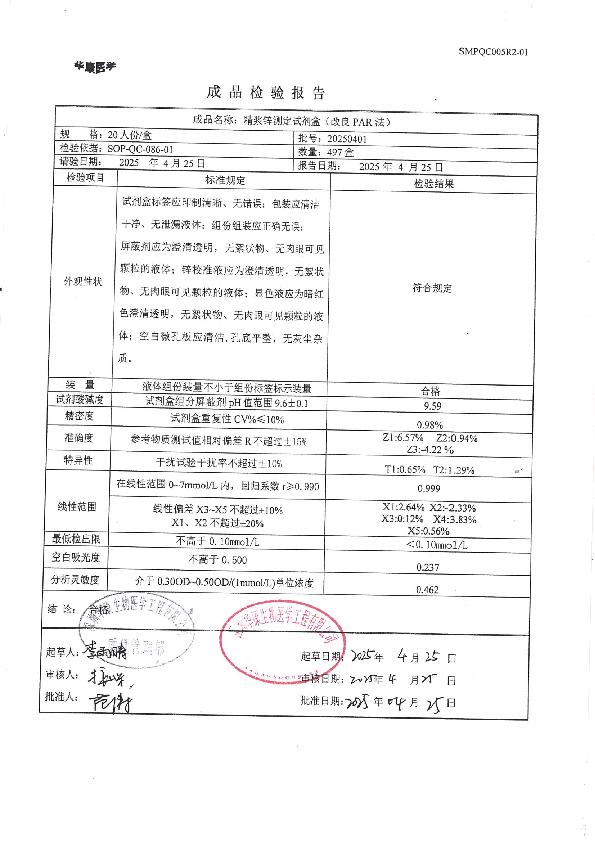 SMPQC005R2-01
华康医学
成品检验报告
成品名称：精浆锌测定试剂盒（改良 PAR 法）
规 格：20 人份/盒 批号：20250401
检验依据：SOP-QC-086-01 数量：497 盒
请验日期： 2025 年 4 月 25 日 报告日期： 2025 年 4 月 25 日
检验项目 标准规定 检验结果
外观性状
试剂盒标签应印制清晰、无错误；包装应清洁
干净、无泄漏液体；组份组装应正确无误；
屏蔽剂应为澄清透明，无絮状物、无肉眼可见
颗粒的液体；锌校准液应为澄清透明，无絮状
物、无肉眼可见颗粒的液体；显色液应为暗红
色澄清透明，无絮状物、无肉眼可见颗粒的液
体；空白微孔板应清洁，孔底平整，无灰尘杂
质。
符合规定
装 量 液体组份装量不小于组份标签标示装量 合格
试剂酸碱度 试剂盒组分屏蔽剂 pH 值范围 9.6±0.1 9.59
精密度 试剂盒重复性 CV%≤10% 0.98%
准确度 参考物质测试值相对偏差 R 不超过±15% Z1:6.57% Z2:0.94%
Z3:-4.22 %
特异性 干扰试验干扰率不超过±10% T1:0.65% T2:1.29%
线性范围
在线性范围 0~7mmol/L 内，回归系数 r≥0.990 0.999
线性偏差 X3~X5 不超过±10%
X1、X2 不超过±20%
X1:2.64% X2:-2.33%
X3:0.12% X4:3.83%
X5:0.56%
最低检出限 不高于 0.10mmol/L ＜0.10mmol/L
空白吸光度 不高于 0.500 0.237
分析灵敏度 介于 0.30OD~0.50OD/(1mmol/L)单位浓度 0.462
结 论：合格
生物医学工程有限公司
质量管理部
华康生物医学工程有限公司
起草人： 起草日期：2025年 4 月 25 日
审核人： 审核日期：2025年 4 月 25 日
批准人： 批准日期：2025年 04 月 25 日